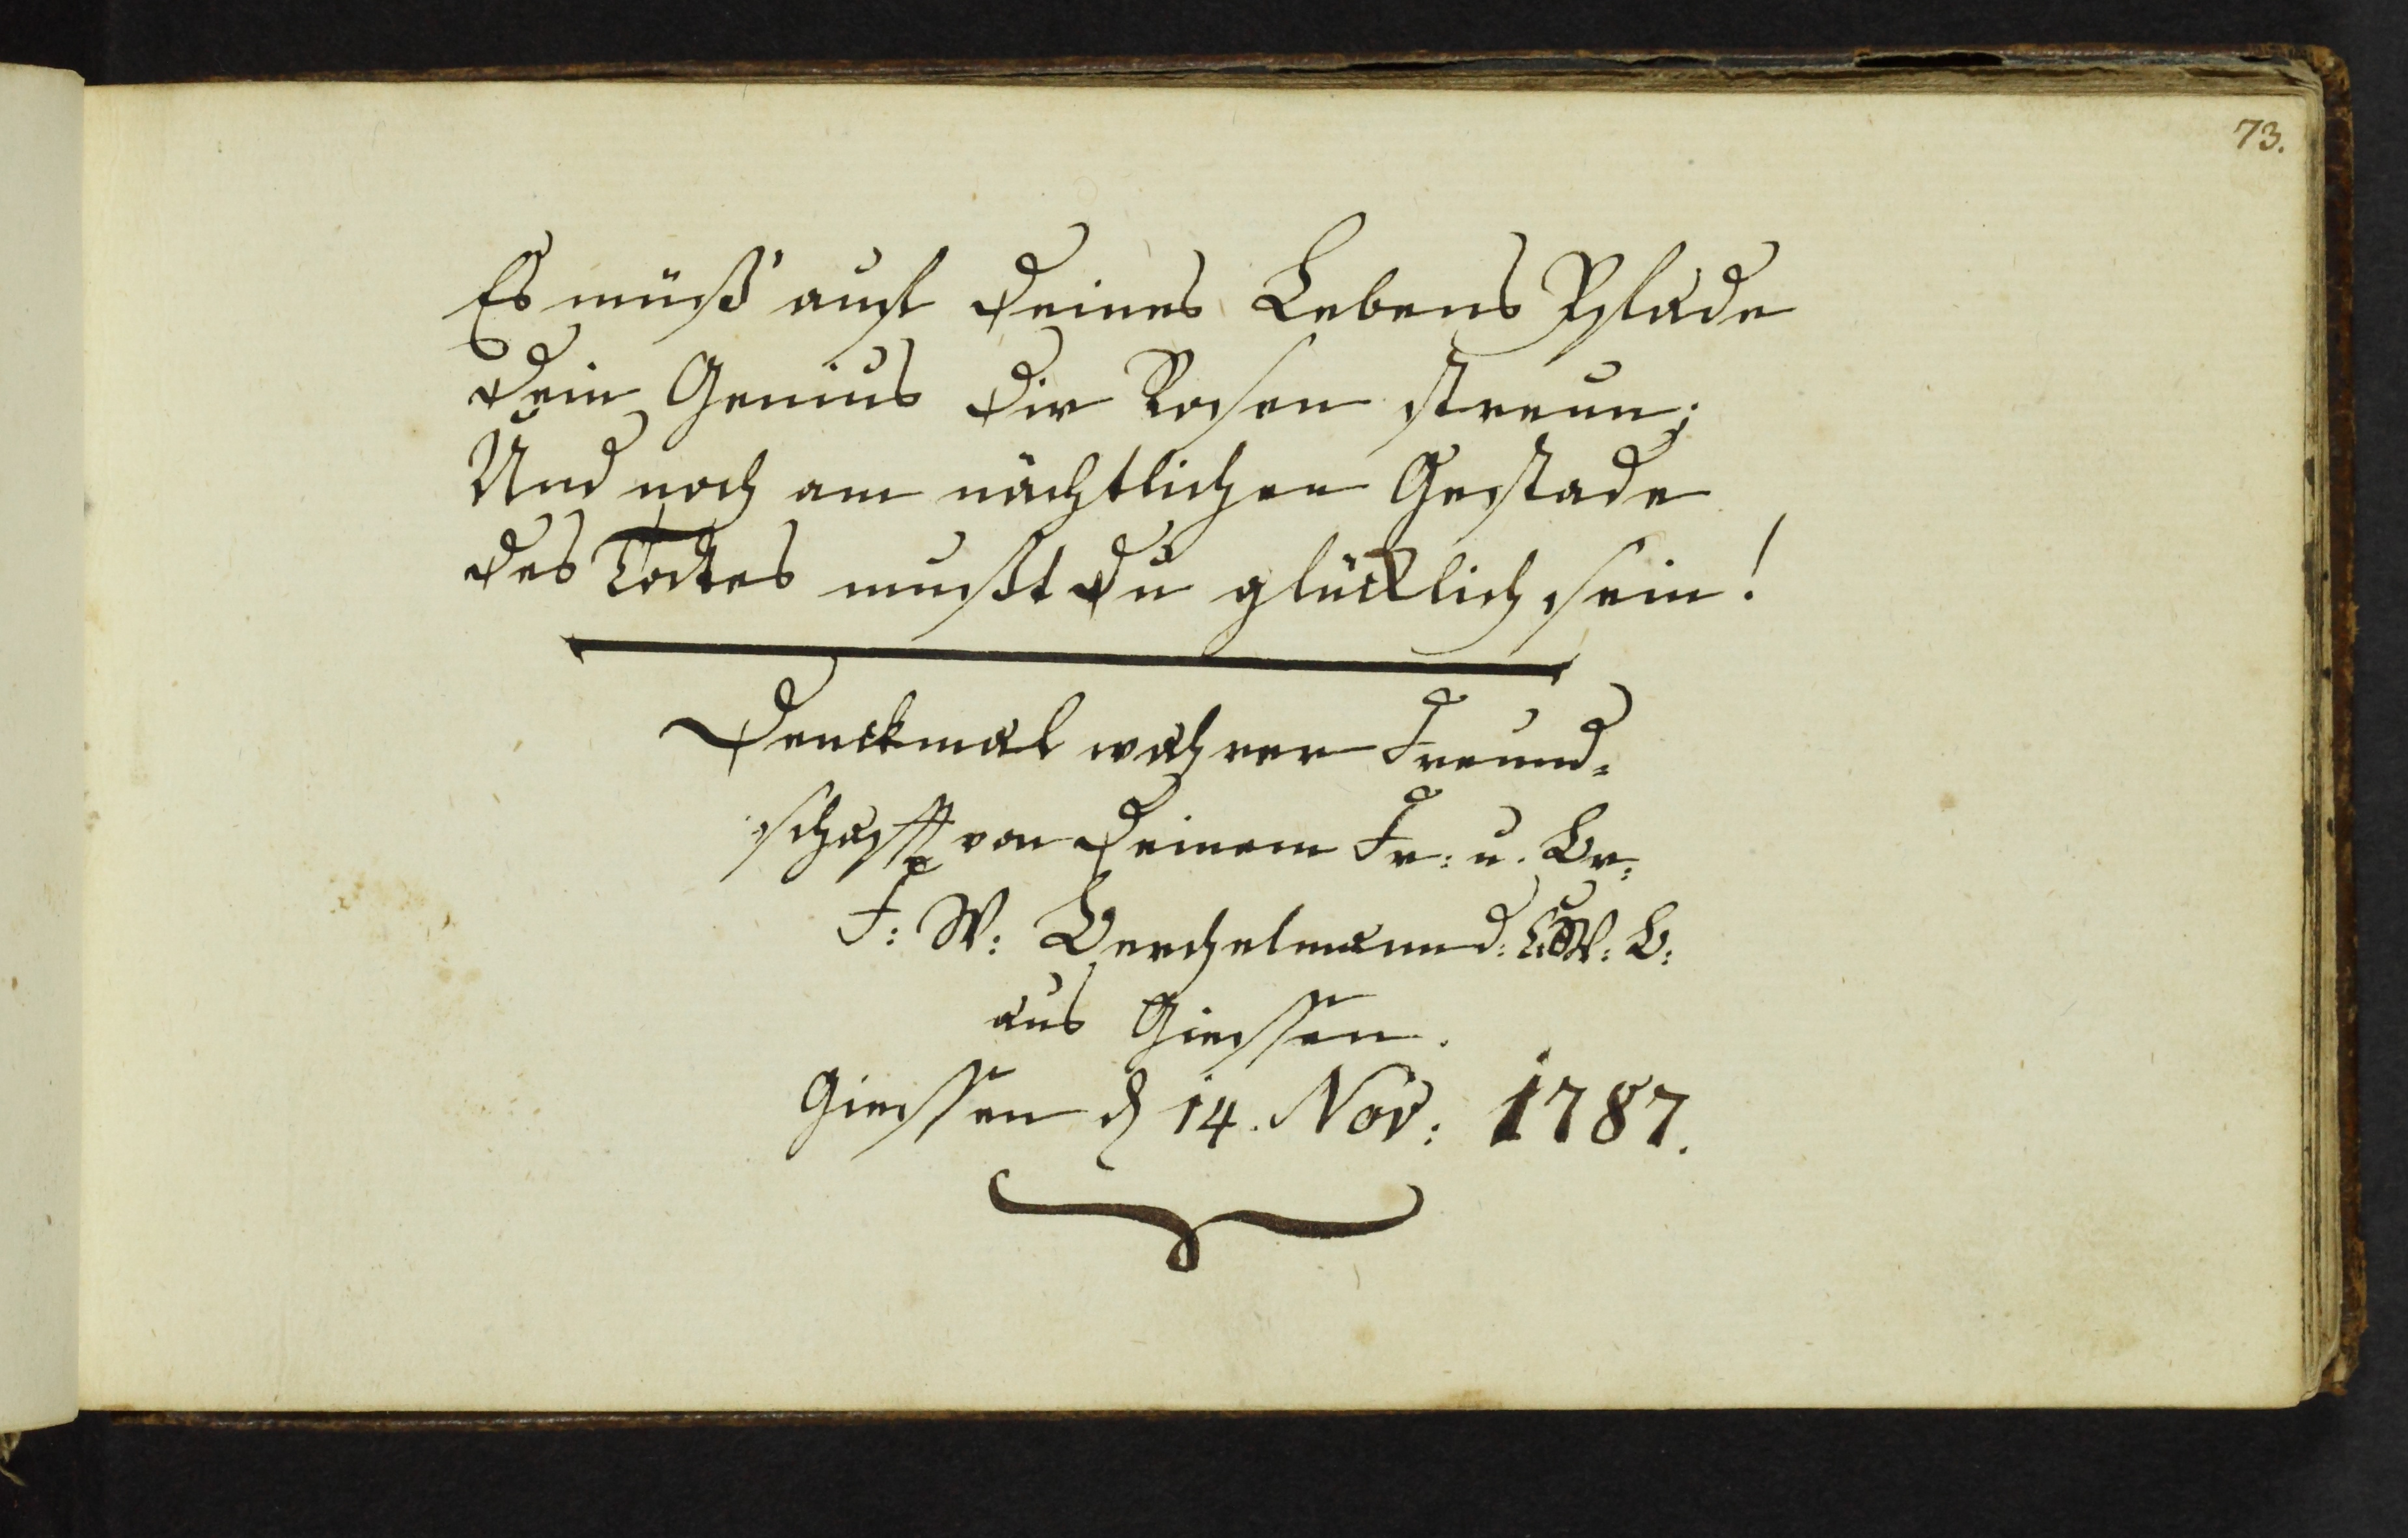 73.
Es müß' auf deines Lebens Pfade
dein Genius dir Rosen streun;
Und noch am nächtlichen Gestade
des Todtes mußt du glücklich sein!
Denckmal wahrer Freund-
schafft von deinem Fr: u. Br:
F: W: Berchelmann d: W: B:
aus Giessen.
Giessen d 14. Nov: 1787.